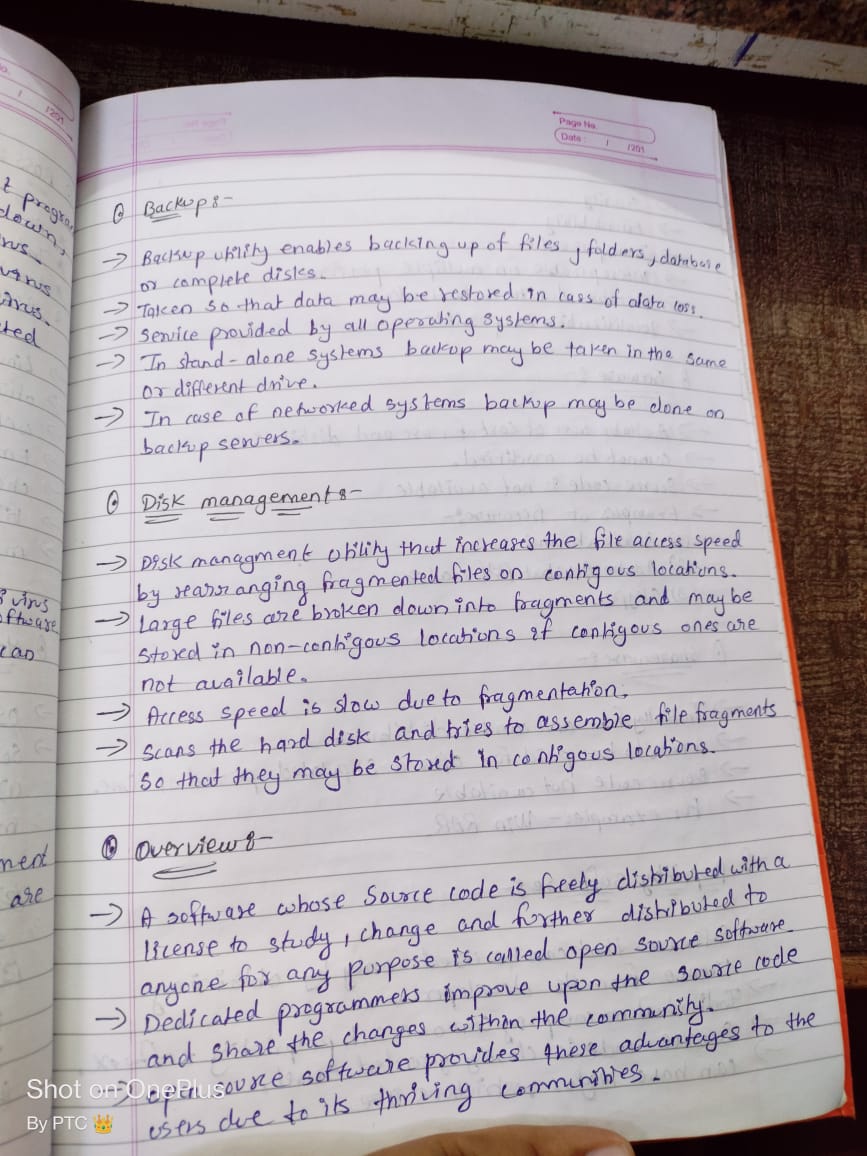 Page No.
Date / /201
/ /201
t progra
down,
rus.
virus
irus.
ted
Backup :-
→ Backup utility enables backing up of files, folders, database
or complete disks.
→ Taken so that data may be restored in cass of data loss.
→ Service provided by all operating systems.
→ In stand-alone systems backop may be taken in the same
or different drive.
→ In case of networked systems backup may be done on
backup servers.
Disk management :-
→ Disk managment utility that increases the file access speed
by rearranging fragmented files on contigous locations.
→ Large files are broken down into fragments and maybe
stored in non-contigous locations if contigous ones are
not available.
→ Access speed is slow due to fragmentation.
→ Scans the hard disk and tries to assemble file fragments
so that they may be stored in contigous locations.
virus
ftware
can
ment
are
Overview :-
→ A software whose source code is freely distributed with a
license to study, change and further distributed to
anyone for any purpose is called open source software.
→ Dedicated programmers improve upon the source code
and share the changes within the community.
→ open source software provides these advantages to the
users due to its thriving communities.
Shot on OnePlus
By PTC 👑